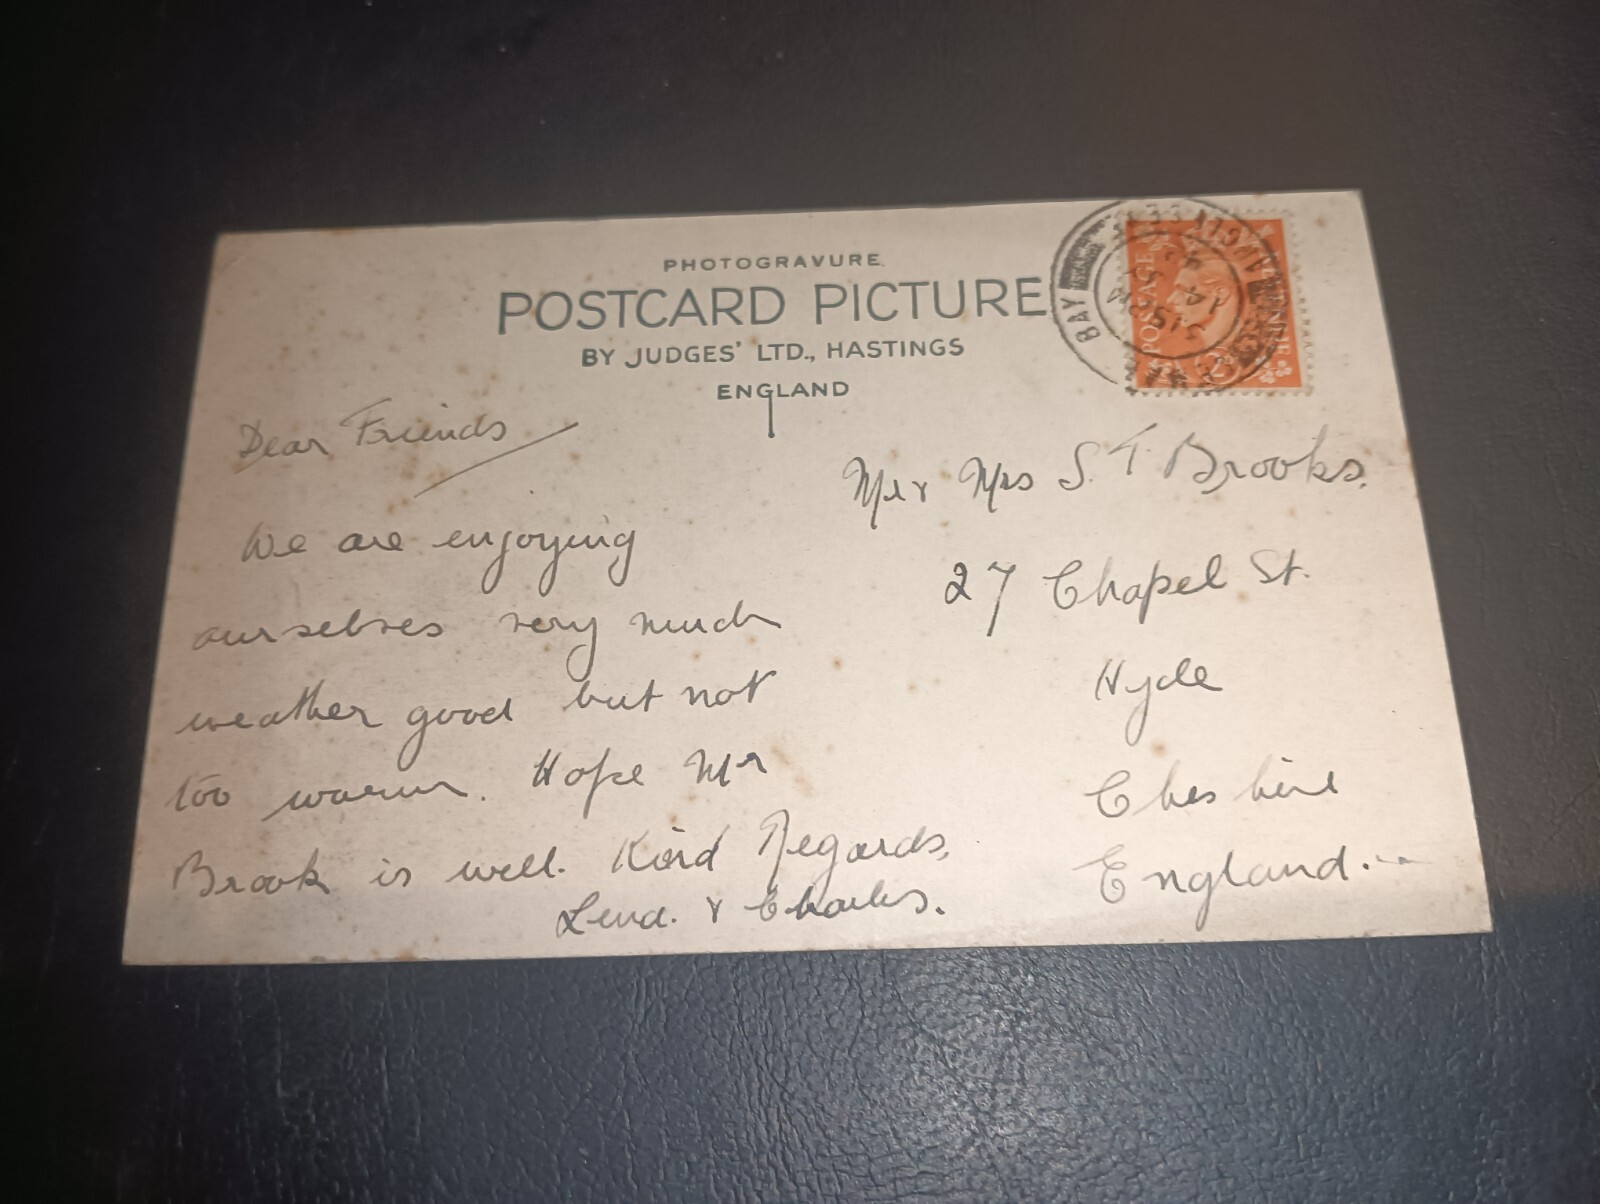 PHOTOGRAVURE.
POSTCARD PICTURE
BY JUDGES' LTD., HASTINGS
ENGLAND
BAY
5 15 PM
POSTAGE
2D
Dear Friends
We are enjoying
ourselves very much
weather good but not
too warm. Hope Mr
Brook is well. Kind Regards,
& Charles.
Mr & Mrs S. T. Brooks,
27 Chapel St.
Hyde
Cheshire
England.